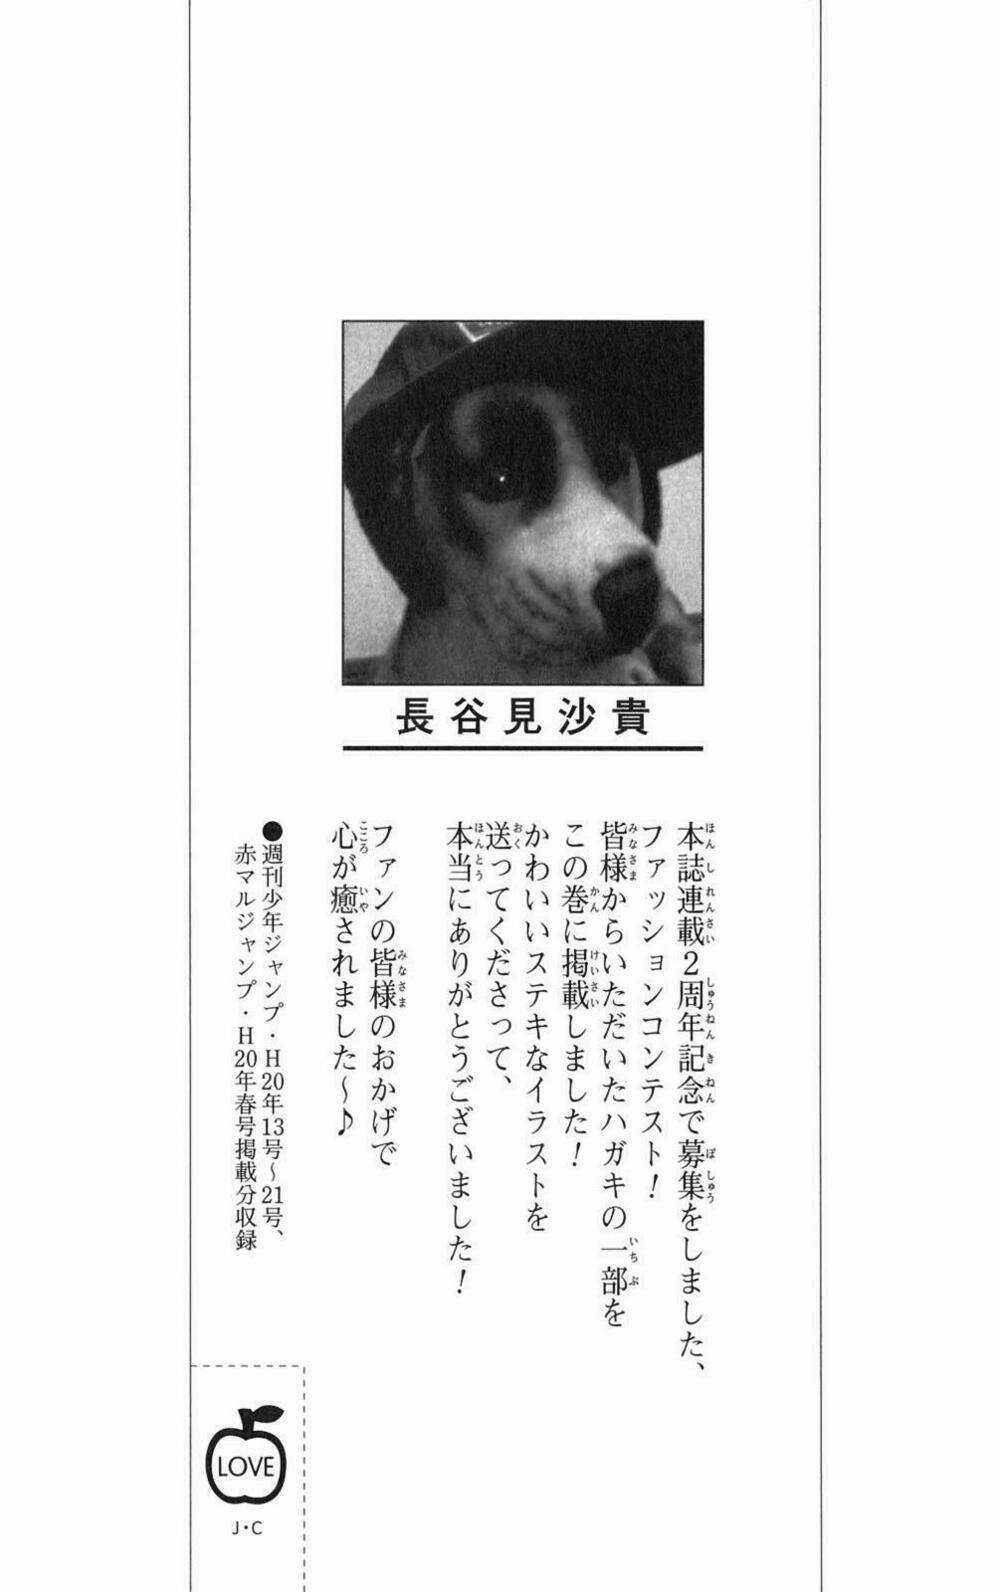 長谷見沙貴
本誌連載2周年記念で募集をしました、
ファッションコンテスト!
皆様からいただいたハガキの一部を
この巻に掲載しました!
かわいいステキなイラストを
送ってくださって、
本当にありがとうございました!
ファンの皆様のおかげで
心が癒されました〜♪
●週刊少年ジャンプ・H20年13号〜21号、
赤マルジャンプ・H20年春号掲載分収録
LOVE
J・C